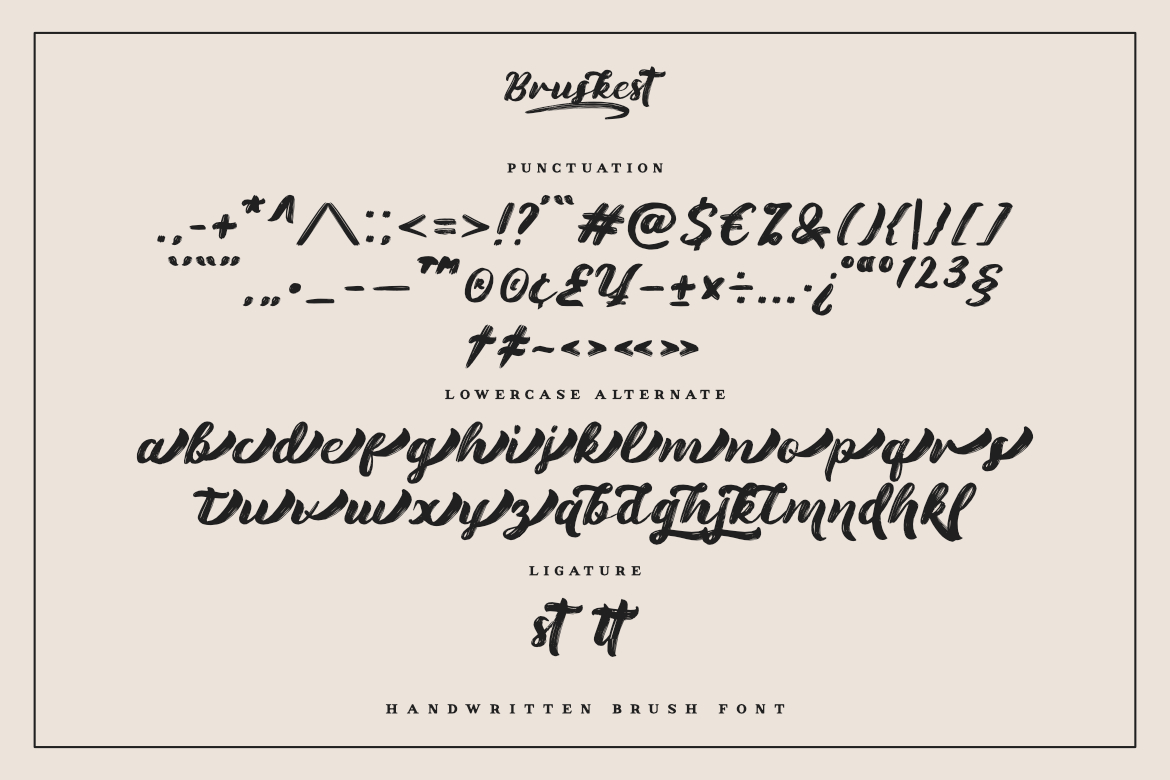 Bruskest
PUNCTUATION
.,-+*^/\:;<=>!?'"#@$€%&(){|}[]
‘’“”‚„•_-–—™®©¢£¥−±×÷…·¿°ªº¹²³§
†‡~‹›«»
LOWERCASE ALTERNATE
abcdefghijklmnopqrs
tuvwxyzabdghjklmndhkl
LIGATURE
st tt
HANDWRITTEN BRUSH FONT